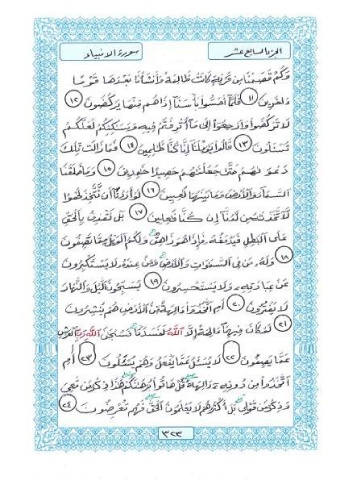 الجزء السابع عشر
سورة الأنبياء
وَكَمْ قَصَمْنَا مِن قَرْيَةٍ كَانَتْ ظَالِمَةً وَأَنشَأْنَا بَعْدَهَا قَوْمًا
ءَاخَرِينَ ١١ فَلَمَّآ أَحَسُّوا۟ بَأْسَنَآ إِذَا هُم مِّنْهَا يَرْكُضُونَ ١٢
لَا تَرْكُضُوا۟ وَٱرْجِعُوٓا۟ إِلَىٰ مَآ أُتْرِفْتُمْ فِيهِ وَمَسَـٰكِنِكُمْ لَعَلَّكُمْ
تُسْـَٔلُونَ ١٣ قَالُوا۟ يَـٰوَيْلَنَآ إِنَّا كُنَّا ظَـٰلِمِينَ ١٤ فَمَا زَالَت تِّلْكَ
دَعْوَىٰهُمْ حَتَّىٰ جَعَلْنَـٰهُمْ حَصِيدًا خَـٰمِدِينَ ١٥ وَمَا خَلَقْنَا
ٱلسَّمَآءَ وَٱلْأَرْضَ وَمَا بَيْنَهُمَا لَـٰعِبِينَ ١٦ لَوْ أَرَدْنَآ أَن نَّتَّخِذَ لَهْوًا
لَّٱتَّخَذْنَـٰهُ مِن لَّدُنَّآ إِن كُنَّا فَـٰعِلِينَ ١٧ بَلْ نَقْذِفُ بِٱلْحَقِّ
عَلَى ٱلْبَـٰطِلِ فَيَدْمَغُهُۥ فَإِذَا هُوَ زَاهِقٌ وَلَكُمُ ٱلْوَيْلُ مِمَّا تَصِفُونَ
١٨ وَلَهُۥ مَن فِى ٱلسَّمَـٰوَٰتِ وَٱلْأَرْضِ وَمَنْ عِندَهُۥ لَا يَسْتَكْبِرُونَ
عَنْ عِبَادَتِهِۦ وَلَا يَسْتَحْسِرُونَ ١٩ يُسَبِّحُونَ ٱلَّيْلَ وَٱلنَّهَارَ
لَا يَفْتُرُونَ ٢٠ أَمِ ٱتَّخَذُوٓا۟ ءَالِهَةً مِّنَ ٱلْأَرْضِ هُمْ يُنشِرُونَ
٢١ لَوْ كَانَ فِيهِمَآ ءَالِهَةٌ إِلَّا ٱللَّهُ لَفَسَدَتَا فَسُبْحَـٰنَ ٱللَّهِ رَبِّ ٱلْعَرْشِ
عَمَّا يَصِفُونَ ٢٢ لَا يُسْـَٔلُ عَمَّا يَفْعَلُ وَهُمْ يُسْـَٔلُونَ ٢٣ أَمِ
ٱتَّخَذُوا۟ مِن دُونِهِۦٓ ءَالِهَةً قُلْ هَاتُوا۟ بُرْهَـٰنَكُمْ هَـٰذَا ذِكْرُ مَن مَّعِىَ
وَذِكْرُ مَن قَبْلِى بَلْ أَكْثَرُهُمْ لَا يَعْلَمُونَ ٱلْحَقَّ فَهُم مُّعْرِضُونَ ٢٤
٣٢٣